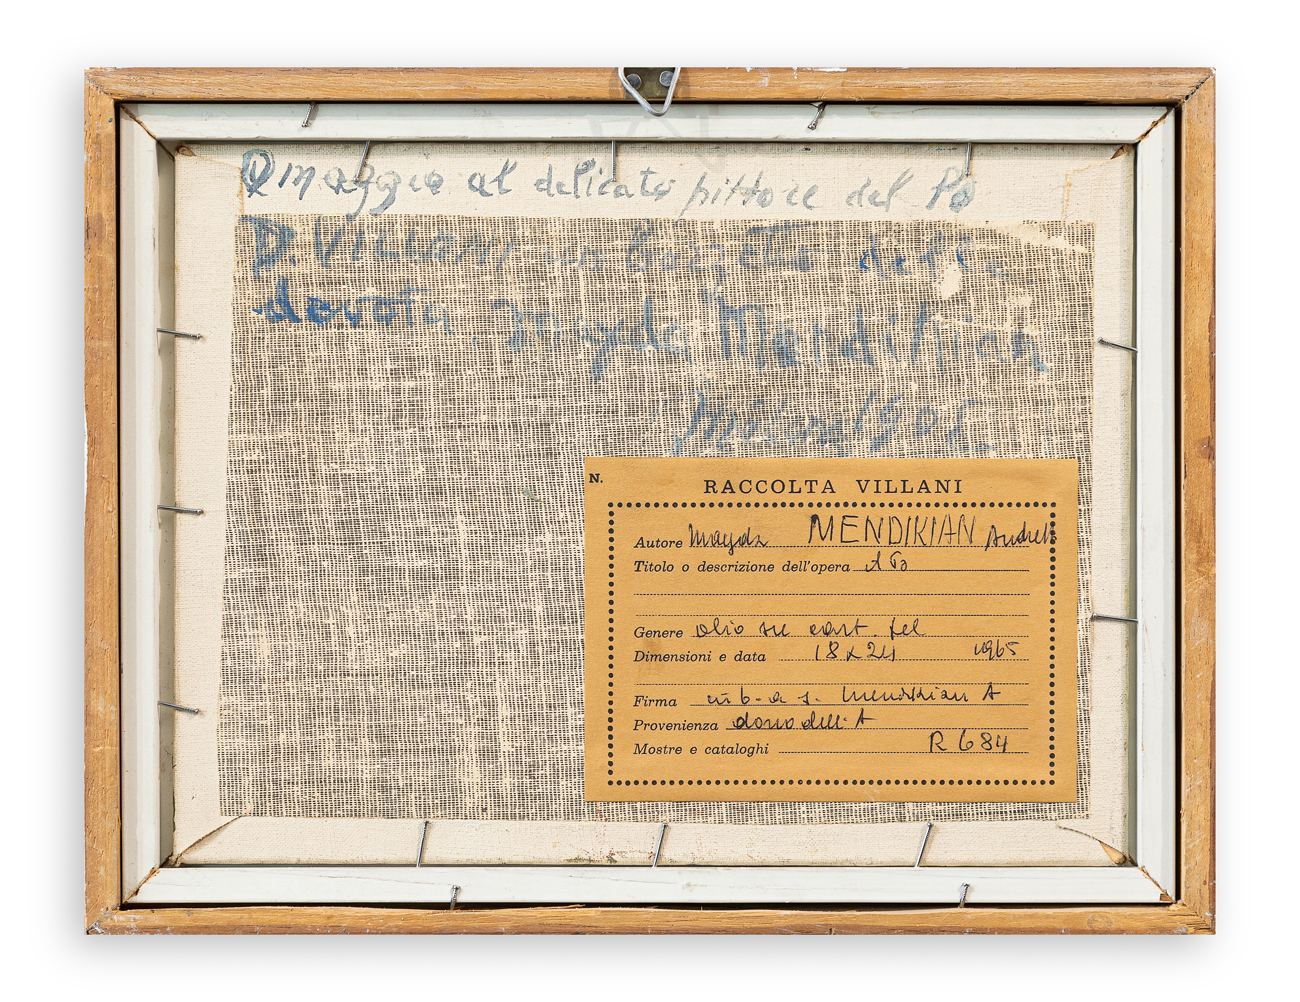 Omaggio al delicato pittore del Po
D. VILLANI un bozzetto della
devota Magda Mendikian
Milano
N.
RACCOLTA VILLANI
Autore Magda MENDIKIAN
Titolo o descrizione dell'opera
Genere olio su cart. tel
Dimensioni e data 18x24 1965
Firma in b. a s. Mendikian A
Provenienza dono dell'A
Mostre e cataloghi R 684